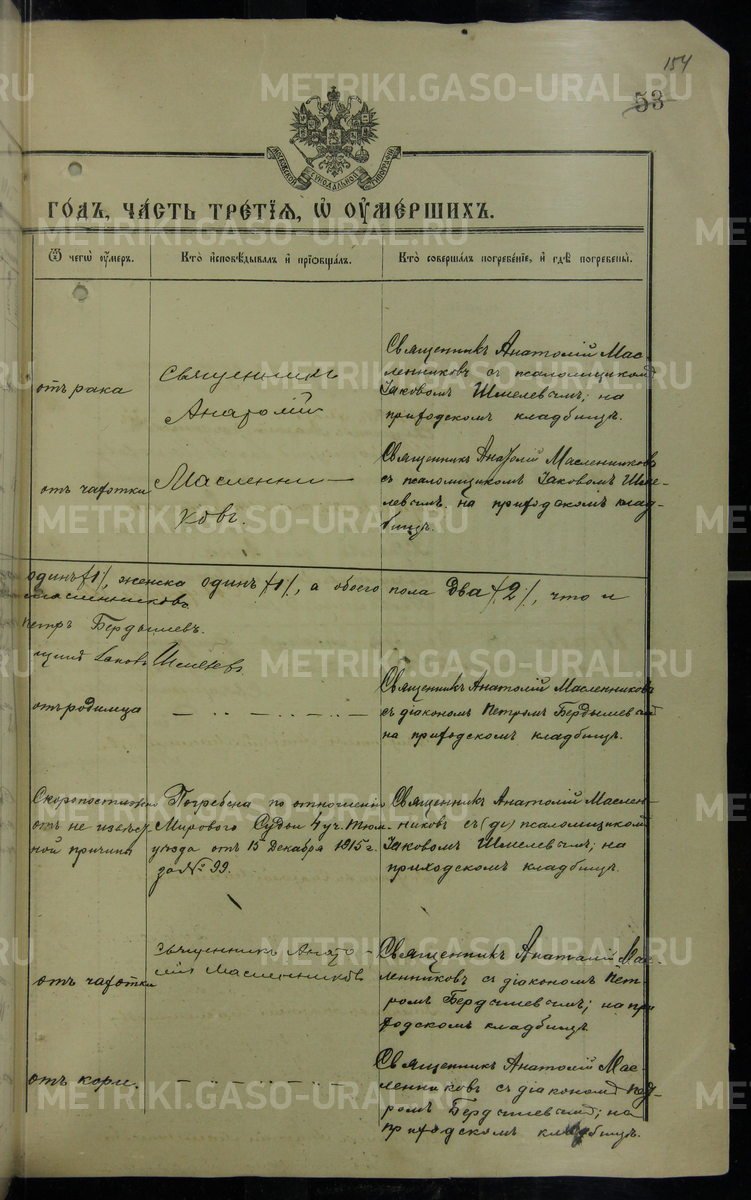 154
53
METRIKI.GASO-URAL.RU
МОСКОВСКОЙ СѴНОДАЛЬНОЙ ТИПОГРАФІИ
ГОДЪ, ЧАСТЬ ТРЕТІЯ, Ѽ ОУМЕРШИХЪ.
Ѿ чегѡ оумеръ.
Кто исповѣдывалъ и пріобщалъ.
Кто совершалъ погребеніе, и гдѣ погребены.
отъ рака
Священникъ
Анатолій
Священникъ Анатолій Мас-
ленниковъ съ псаломщикомъ
Іаковомъ Шмелевымъ; на
приходскомъ кладбищѣ.
отъ чахотки
Масленни-
ковъ.
Священникъ Анатолій Масленниковъ
съ псаломщикомъ Іаковомъ Шме-
левымъ. на приходскомъ клад-
бищѣ.
одинъ /1/, женска одинъ /1/, а обоего пола два /2/, что и
Масленниковъ
Петръ Бердышевъ.
Іаковъ Шмелевъ
отъ родимца
Священникъ Анатолій Масленниковъ
съ діакономъ Петромъ Бердышевымъ
на приходскомъ кладбищѣ.
Скоропостижно
отъ не извѣст
ной причины
Погребена по отношенію
Мирового Судьи 4 уч. Тюм.
уѣзда отъ 15 Декабря 1915 г.
за № 99.
Священникъ Анатолій Маслен-
никовъ съ (ді) псаломщикомъ
Іаковомъ Шмелевымъ; на
приходскомъ кладбищѣ.
отъ чахотки
Священникъ Анато-
лій Масленниковъ
Священникъ Анатолій Мас-
ленниковъ съ діакономъ Пет-
ромъ Бердышевымъ; на при
ходскомъ кладбищѣ.
отъ кори.
Священникъ Анатолій Мас-
ленниковъ съ діакономъ Пет-
ромъ Бердышевымъ; на
приходскомъ кладбищѣ.